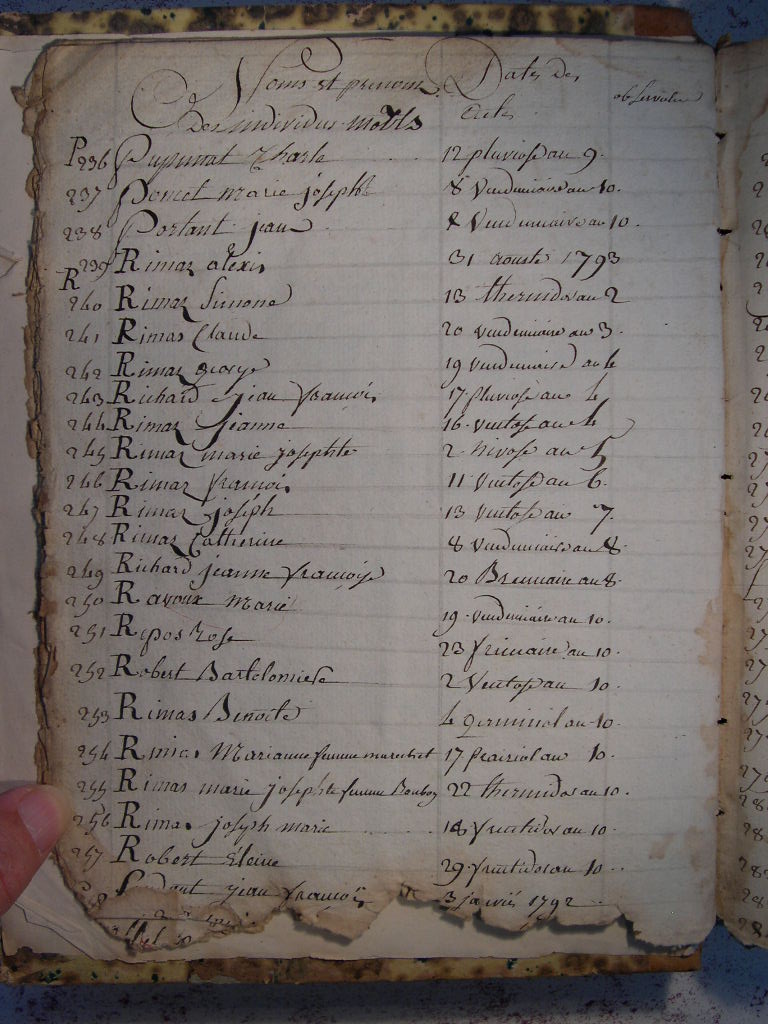 Noms et prenoms Dates des
Des individus morts actes observation
P 236 Charle 12 pluviose an 9.
237 Poncet marie josephte 8 Vendemiaire an 10.
238 Portant jean 8 Vendemiaire an 10.
R 239 Rimaz alexis 31 aouste 1793
240 Rimaz Simone 13 thermidor an 2
241 Rimas Claude 20 vendemiaire an 3.
242 Rimaz george 19 vendemiaire an 4
243 Richard jean françois 17 pluviose an 4
244 Rimaz jeanne 16 ventose an 4
245 Rimaz marie josephte 2 nivose an 5
246 Rimaz françois 11 Ventose an 6.
247 Rimaz joseph 13 Ventose an 7.
248 Rimaz Catherine 8 Vendemiaire an 8.
249 Richard jeanne françoise 20 Brumaire an 8.
250 Ravoux Marie 19 vendemiaire an 10.
251 Repos Rose 23 frimaire an 10.
252 Robert Bartelomiere 2 Ventose an 10.
253 Rimas Benoite 4 germinal an 10.
254 Rimas Marianne femme 17 prairial an 10.
255 Rimas marie josephte femme 22 thermidor an 10.
256 Rimas joseph marie 18 fructidor an 10.
257 Robert 29 fructidor an 10.
jean françois 3 janvié 1792